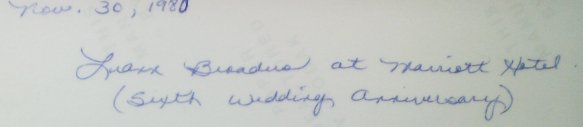 Nov. 30, 1980
at Marriott Hotel.
(Sixth Wedding Anniversary)